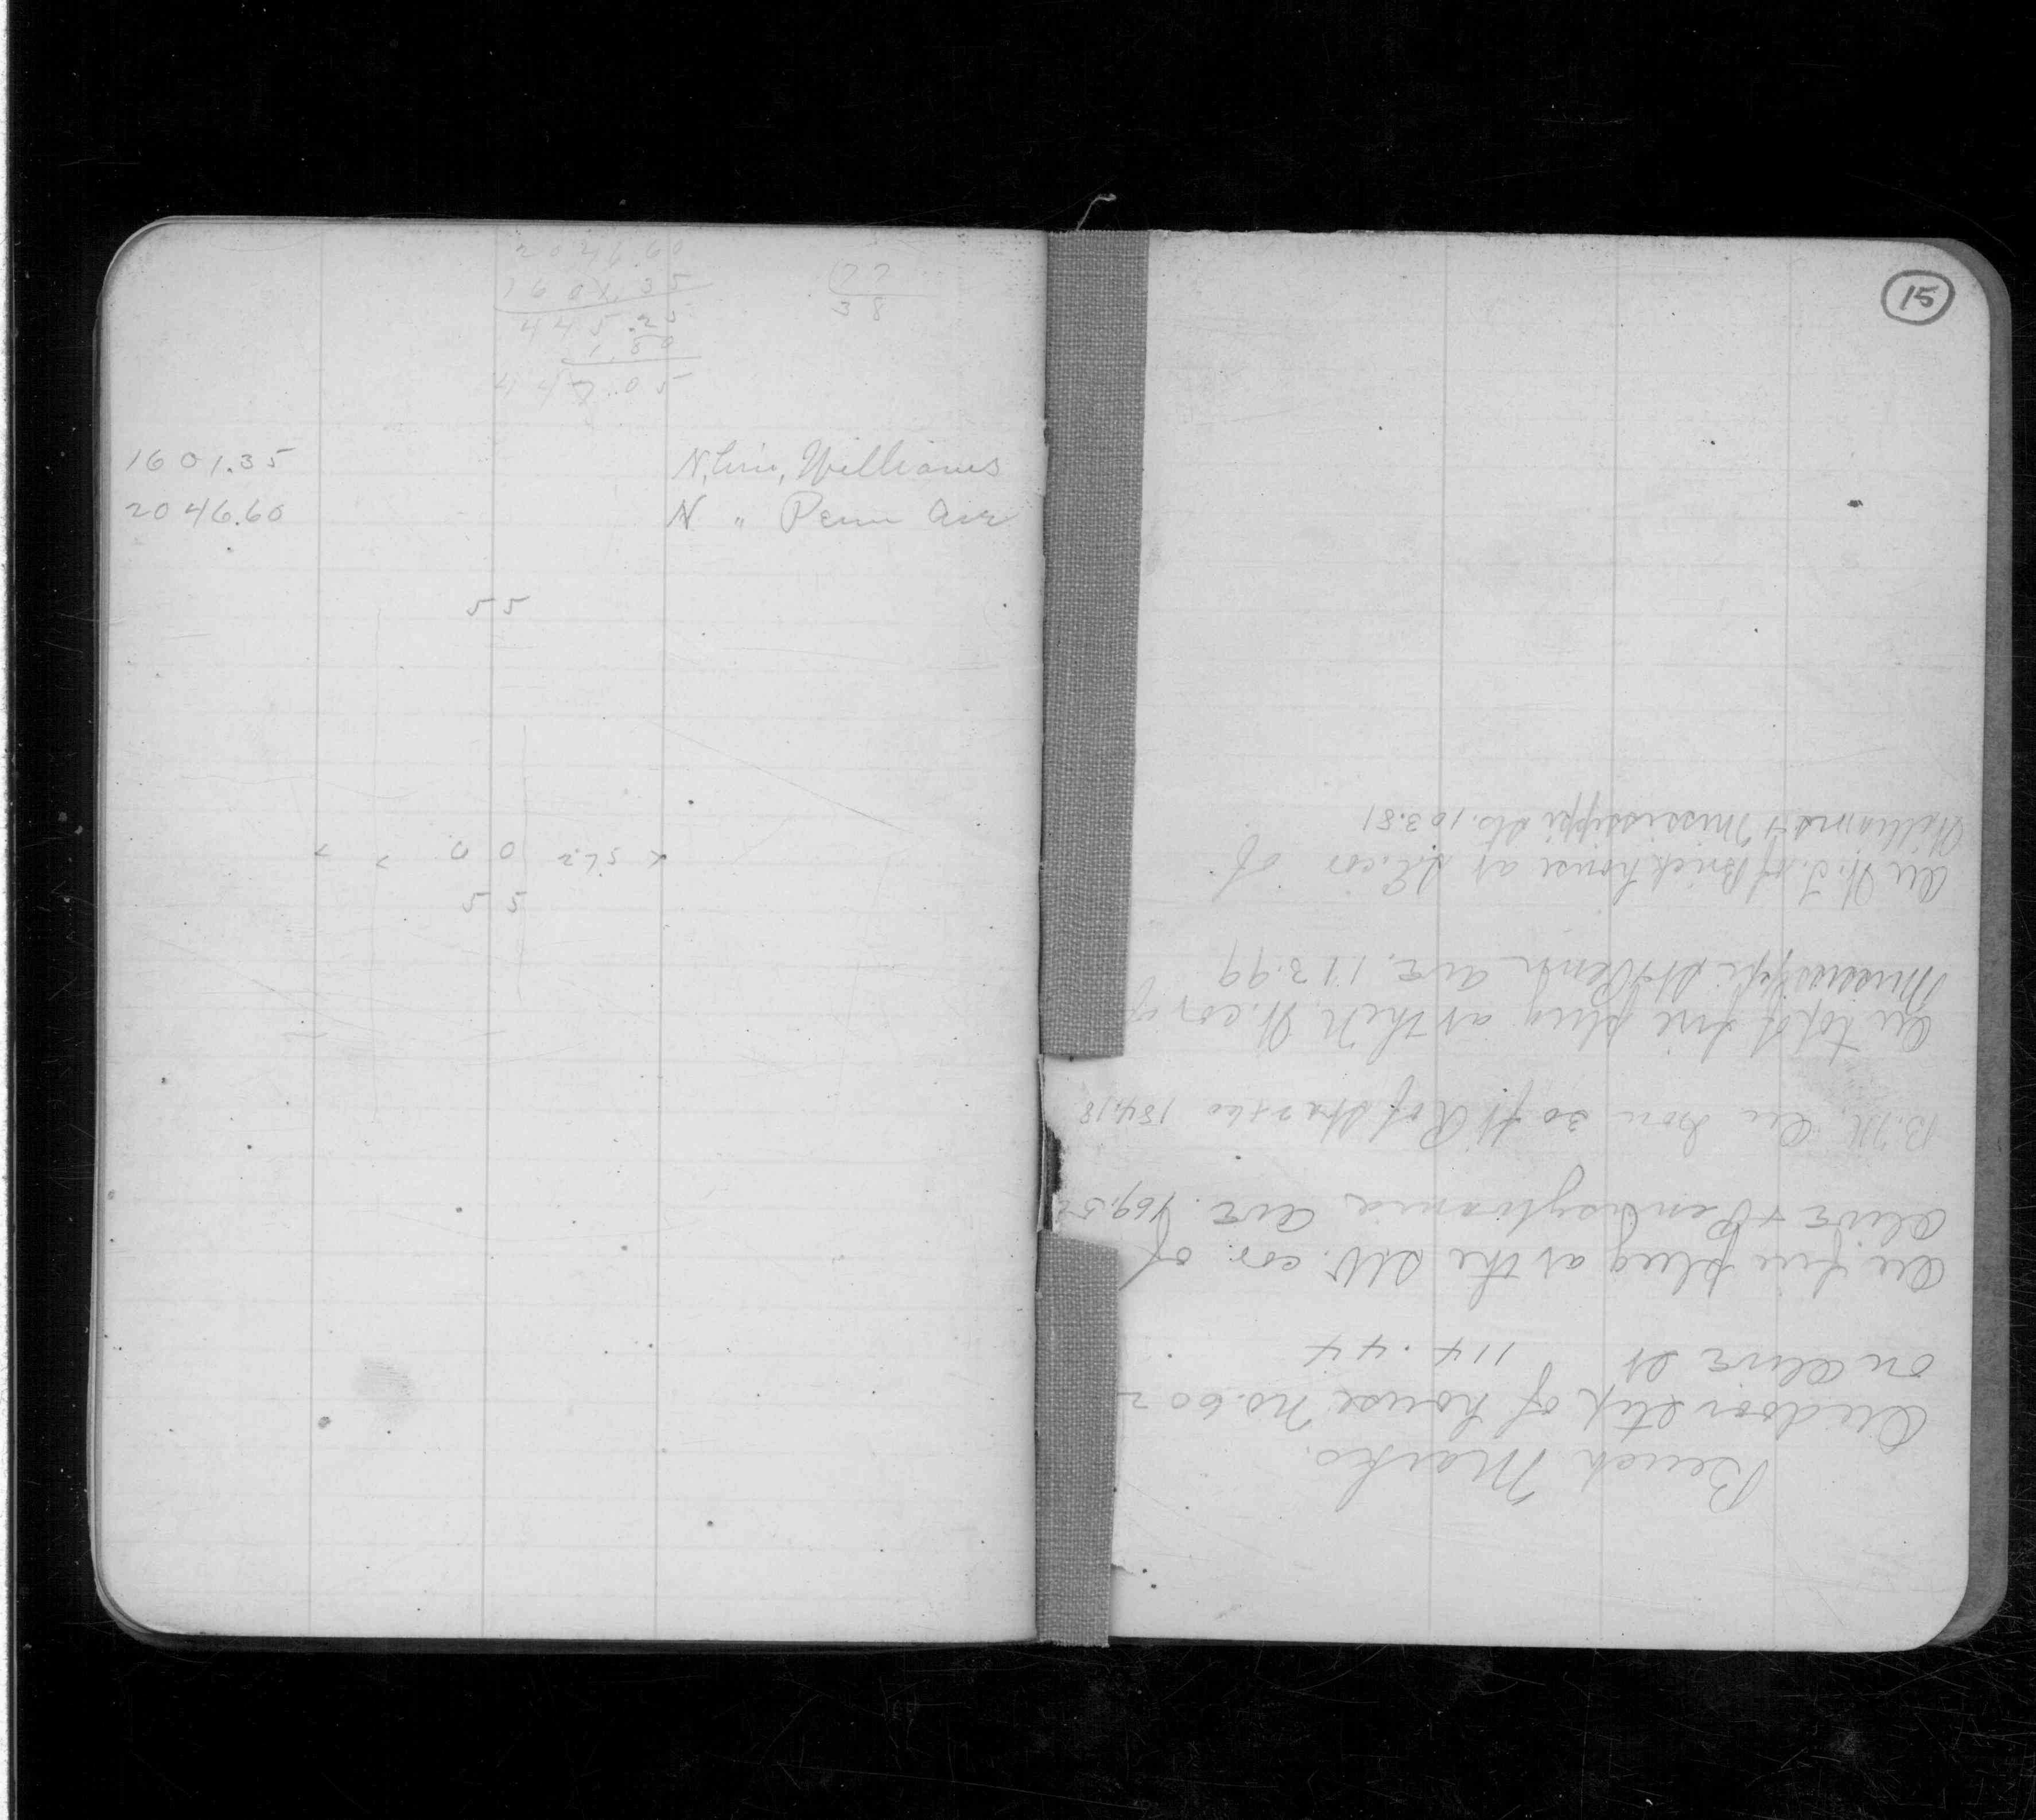 2046.60
1601.35
445.25
1.80
447.05
22
38
1601.35 N. Line, Williams
2046.60 N " Penn Ave
55
0 0 2.75
55
15
Bench Marks.
On door step of house No. 602
on Olive St 114.44
On fire plug at the S.W. cor. of
Olive + Pennsylvania Ave. 169.52
B.M. On iron 30 ft R of Sta 2+60 184.18
On top of fire plug at the N.W. cor of
Mississippi St + Penn ave. 113.99
On W.T. of Brick house at S.E. cor of
Williams + Mississippi Sts. 103.81